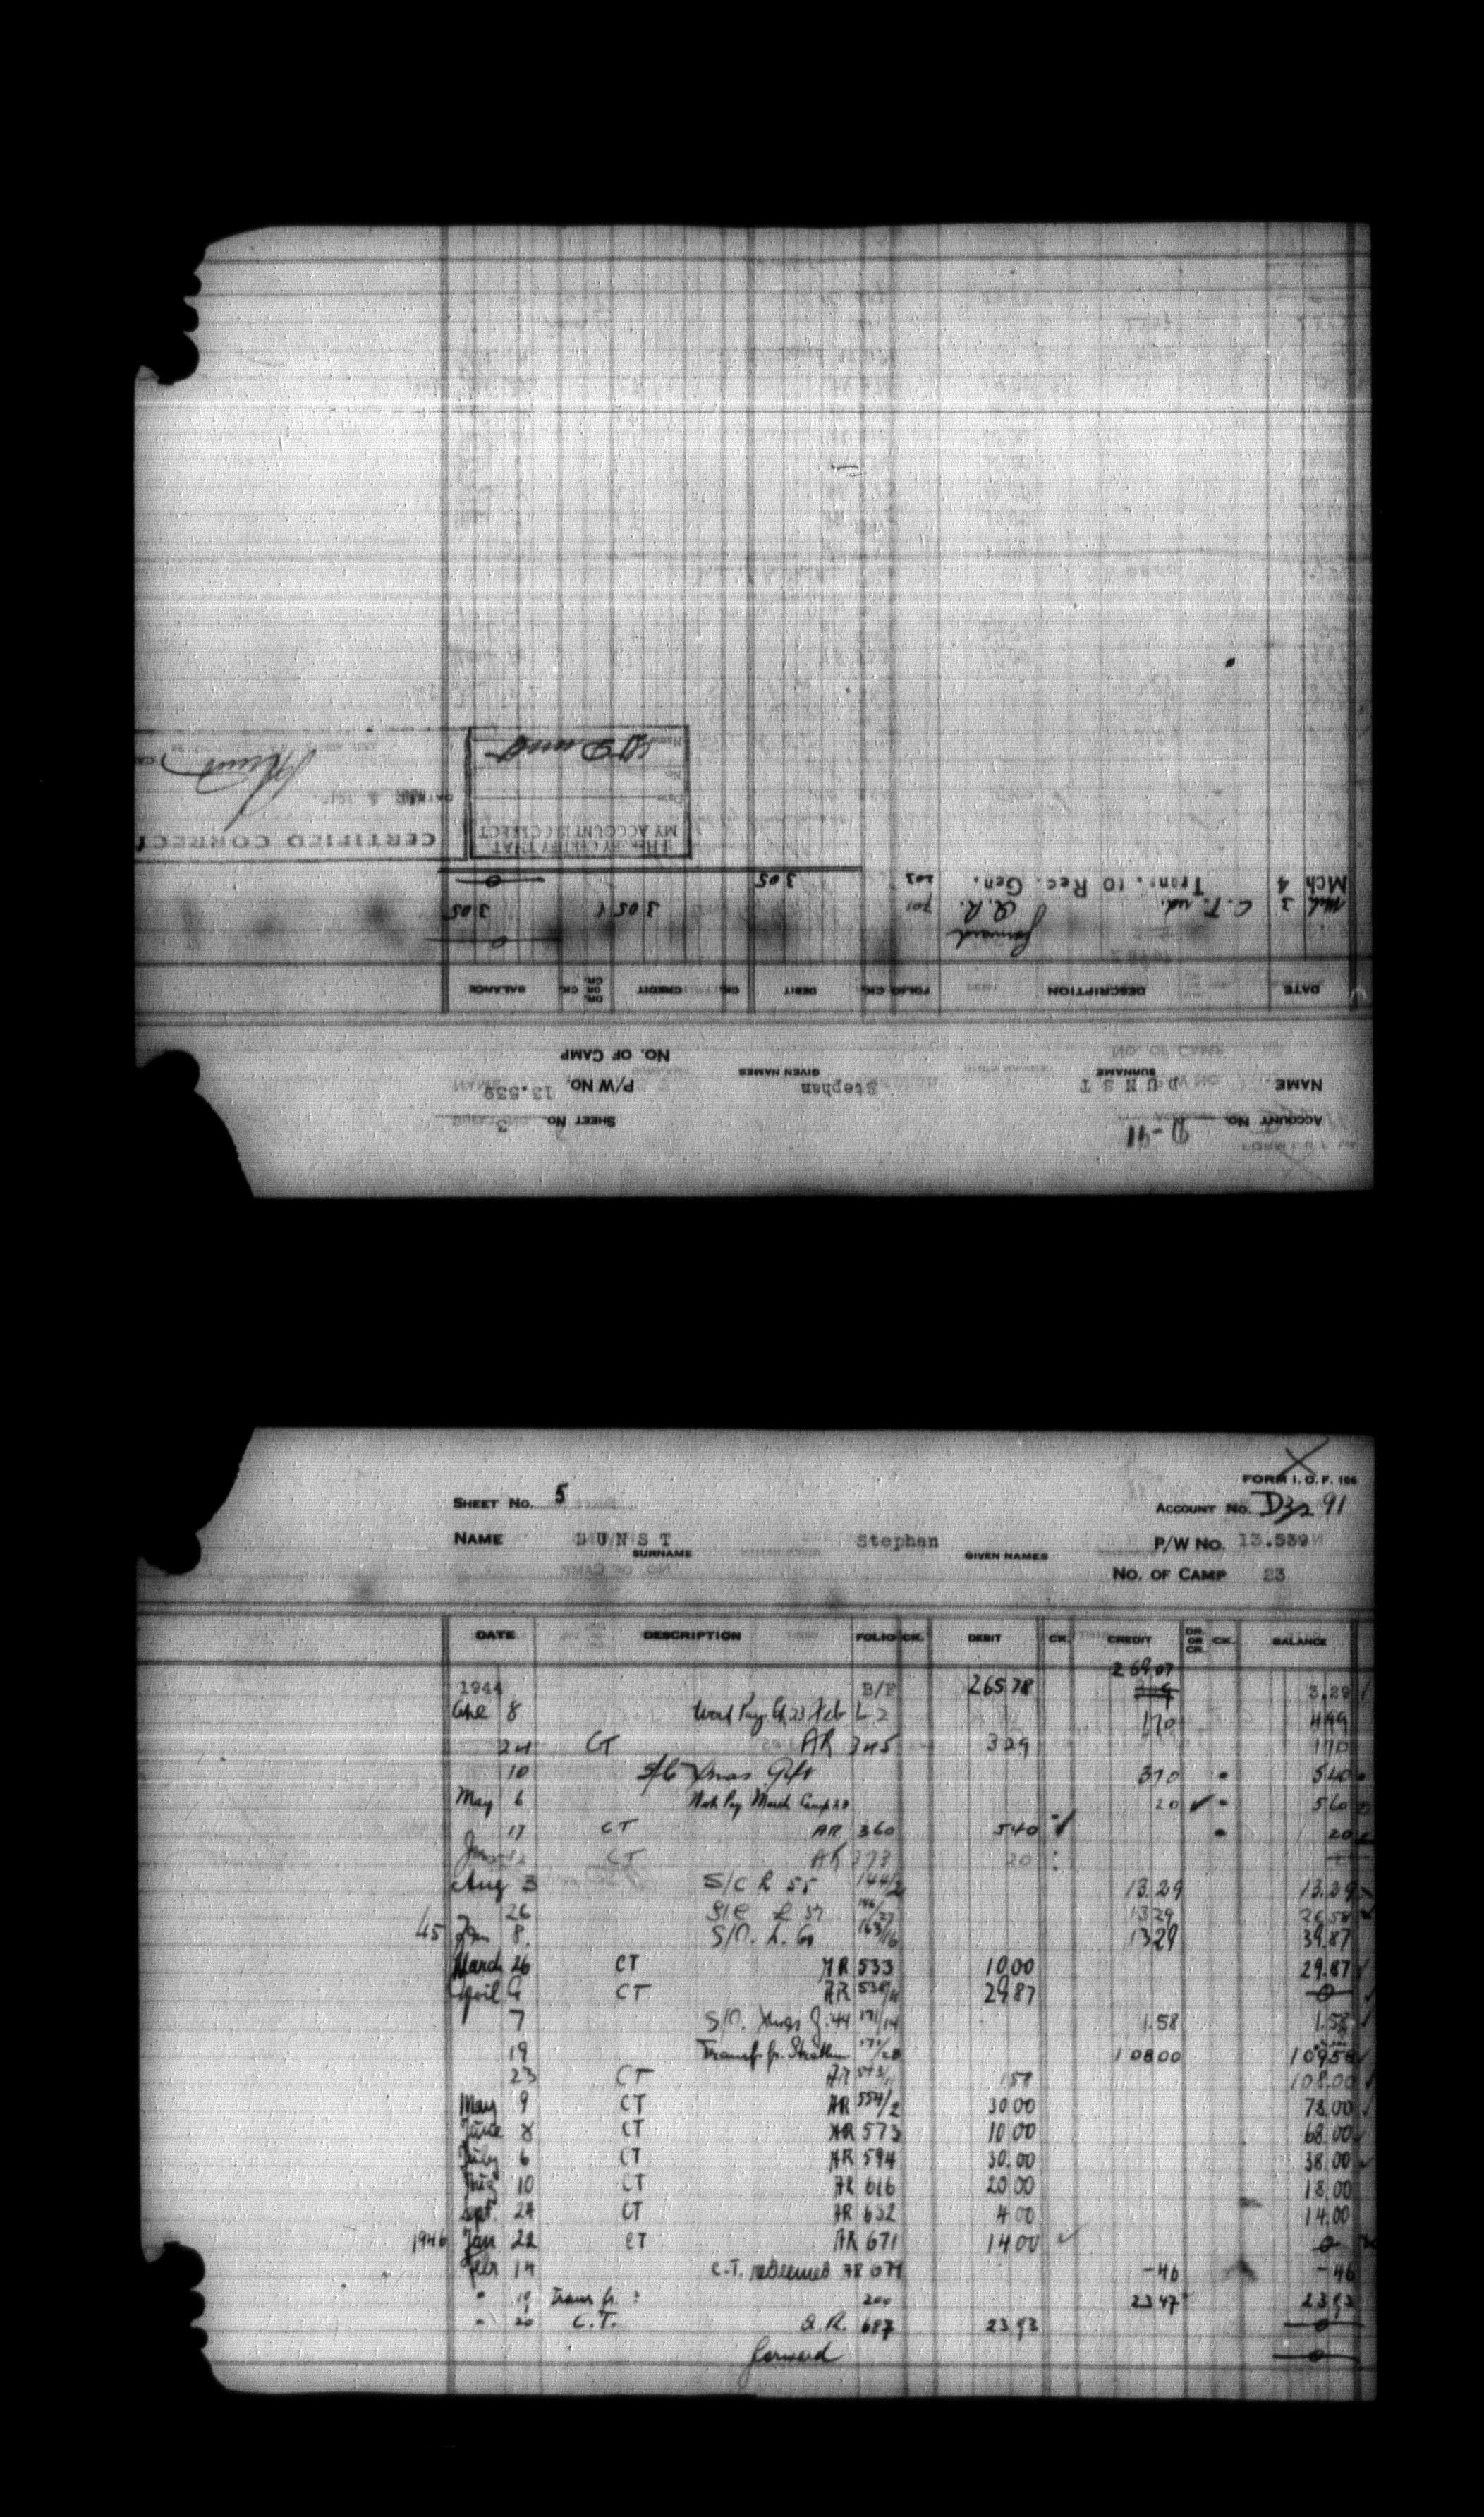 ACCOUNT No. D-91 SHEET No. 3
NAME DUNST Stephan P/W No. 13.539
SURNAME GIVEN NAMES NO. OF CAMP
DATE DESCRIPTION FOLIO CK. DEBIT CK. CREDIT DR. OR CR. CK. BALANCE
forward 0
Mch 3 C.T. rd. A.R. 701 3 05 3 05
Mch 4 Trans. to Rec. Gen. 202 3 05 0
I HEREBY CERTIFY THAT
MY ACCOUNT IS CORRECT
Date
No.
Name
CERTIFIED CORRECT
DATE
FORM I. O. F. 106
SHEET No. 5 ACCOUNT No. 91
NAME DUNST Stephan P/W No. 13.539
SURNAME GIVEN NAMES
No. OF CAMP 23
DATE DESCRIPTION FOLIO CK. DEBIT CK. CREDIT DR. OR CR. CK. BALANCE
1944 B/F 265 78 269 07 3.29
8 Work Pay Feb L 2 1 70 4 99
24 CT AR 345 3 29 1 70
10 Xmas Gift 3 70 5 40
May 6 Work Pay March Camp 5 60
20
17 CT AR 360 5 40 20
CT AR 373 20
Aug 3 S/C L 55 144/2 13.29 13.29
26 13 29 26 58
45 Jan 8. S/O. L. 163/16 13 29 39.87
March 26 CT AR 533 10 00 29.87
April CT AR 538/11 29 87 0
7 S/O. Xmas G. 44 171/14 1.58 1.58
19 Transf. fr. 108 00 109 58
23 CT AR 543/11 1 58 108.00
May 9 CT AR 554/2 30 00 78.00
June 8 CT AR 573 10 00 68.00
July 6 CT AR 594 30.00 38.00
Aug 10 CT AR 616 20 00 18.00
Sept. 24 CT AR 652 4 00 14.00
1946 Jan 22 CT AR 671 14 00 0
Febr 14 C.T. redeemed AR 679 -46 -46
" 19 Trans fr. 200 23 47 23 93
" 20 C.T. A.R. 687 23 93 0
forward 0